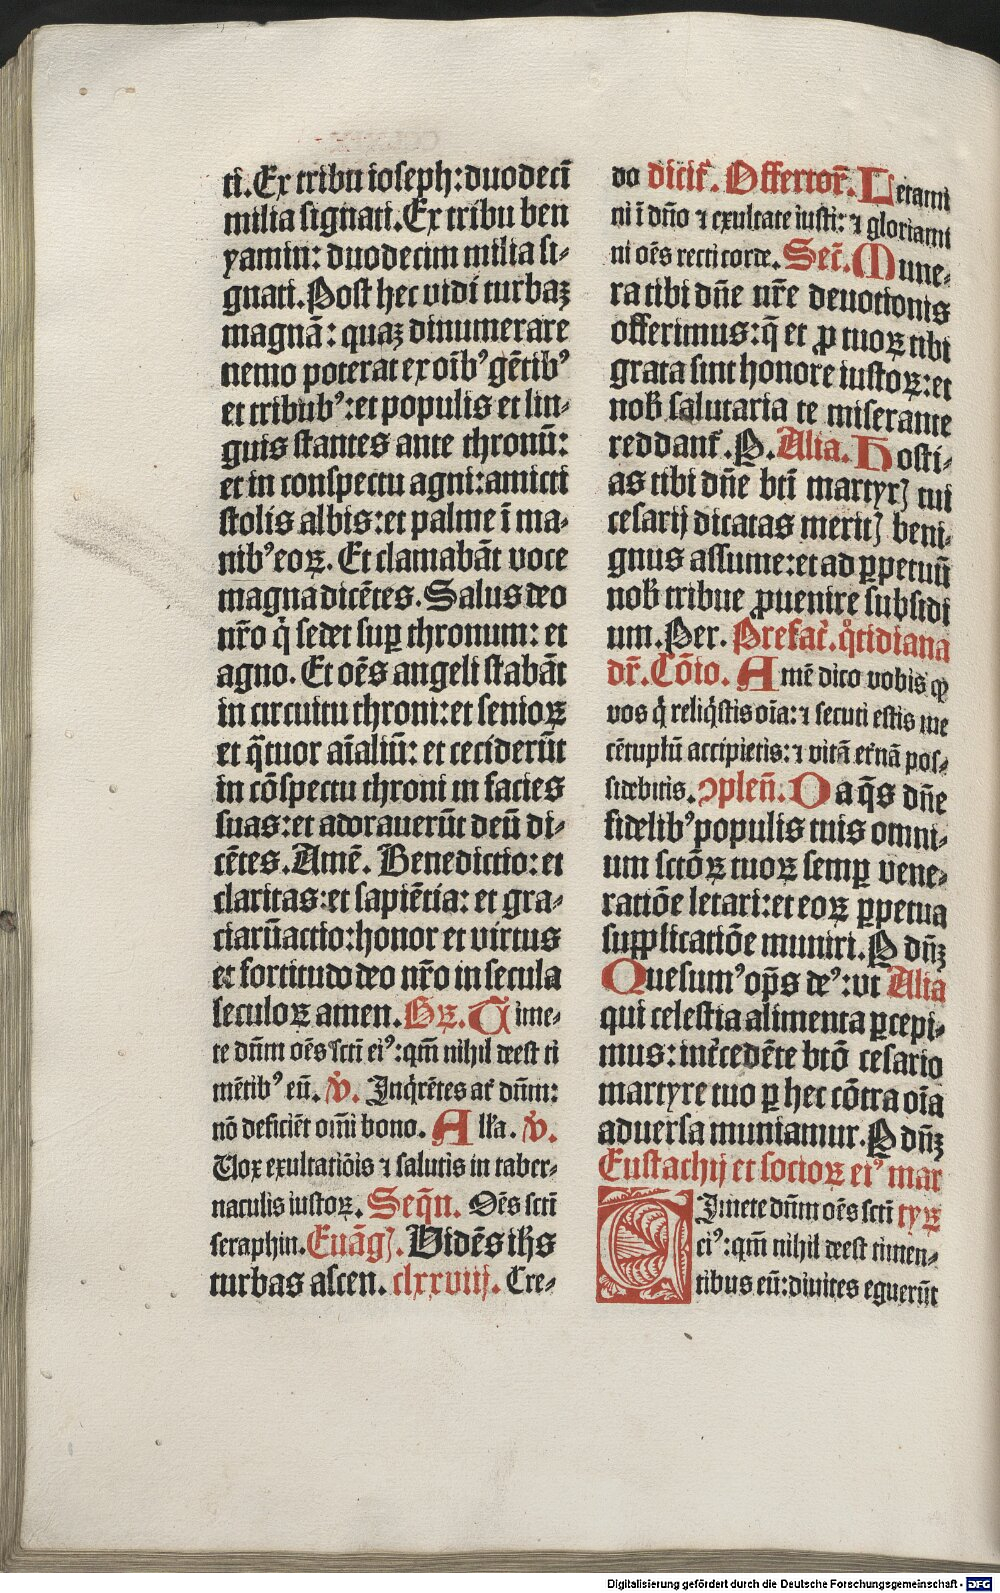 ti. Ex tribu ioseph: duodecī
milia signati. Ex tribu ben
yamin: duodecim milia si⸗
gnati. Post hec vidi turbaꝫ
magnā: quaꝫ dinumerare
nemo poterat ex oīb⁹ gētib⁹
et tribub⁹: et populis et lin⸗
guis stantes ante thronū:
et in conspectu agni: amicti
stolis albis: et palme ī ma⸗
nib⁹ eoꝝ. Et clamabāt voce
magna dicētes. Salus deo
nr̄o q̇ sedet suꝑ thronum: et
agno. Et oēs angeli stabāt
in circuitu throni: et senioꝝ
et q̄tuor aīaliū: et ceciderūt
in cōspectu throni in facies
suas: et adorauerūt deū di⸗
cētes. Amē. Benedictio: et
claritas: et sapiētia: et gra⸗
ciarū actio: honor et virtus
et fortitudo deo nr̄o in secula
seculoꝝ amen. Gꝝ. Time⸗
te dn̄m oēs scti ei⁹: qm̄ nihil deest ti
mētib⁹ eū. v̇. Inq̇rētes at̄ dn̄m:
nō deficiēt om̄i bono. Alľa. v̇.
Vox exultatiōis ⁊ salutis in taber⸗
naculis iustoꝝ. Seq̄n. Oēs scti
seraphin. Euāgꝭ. Vidēs ih̄s
turbas ascen. clxxviij. Cre⸗
do dicit̄. Offertor̄. Letami
ni ī dn̄o ⁊ exultate iusti: ⁊ gloriami
ni oēs recti corde. Secr̄. Mune⸗
ra tibi dn̄e nr̄e deuotionis
offerimus: q̄ et ꝓ tuoꝝ tibi
grata sint honore iustoꝝ: et
nob̄ salutaria te miserante
reddant̄. P. Alia. Hosti⸗
as tibi dn̄e bt̄i martyrꝭ tui
cesarij dicatas meritꝭ beni⸗
gnus assume: et ad ꝑpetuū
nob̄ tribue ꝓuenire subsidi
um. Per. Prefat̄. q̊tidiana
dr̄. Cōio. Amē dico vobis ꝙ
vos q̇ reliq̇stis oīa: ⁊ secuti estis me
cētuplū accipietis: ⁊ vitā et̄nā pos⸗
sidebitis. ↄplen̄. Da q̄s dn̄e
fidelib⁹ populis tuis omni⸗
um sctōꝝ tuoꝝ semꝑ vene⸗
ratiōe letari: et eoꝝ ꝑpetua
supplicatiōe muniri. P dn̄ꝫ
Quesum⁹ op̄s de⁹: vt Alia
qui celestia alimenta ꝑcepi⸗
mus: int̄cedēte btō cesario
martyre tuo ꝑ hec cōtra oīa
aduersa muniamur. P dn̄ꝫ
Eustachij et socioꝝ ei⁹ mar
Timete dn̄m oēs scti tyꝝ
ei⁹: qm̄ nihil deest timen⸗
tibus eū: diuites eguerūt
Digitalisierung gefördert durch die Deutsche Forschungsgemeinschaft - DFG